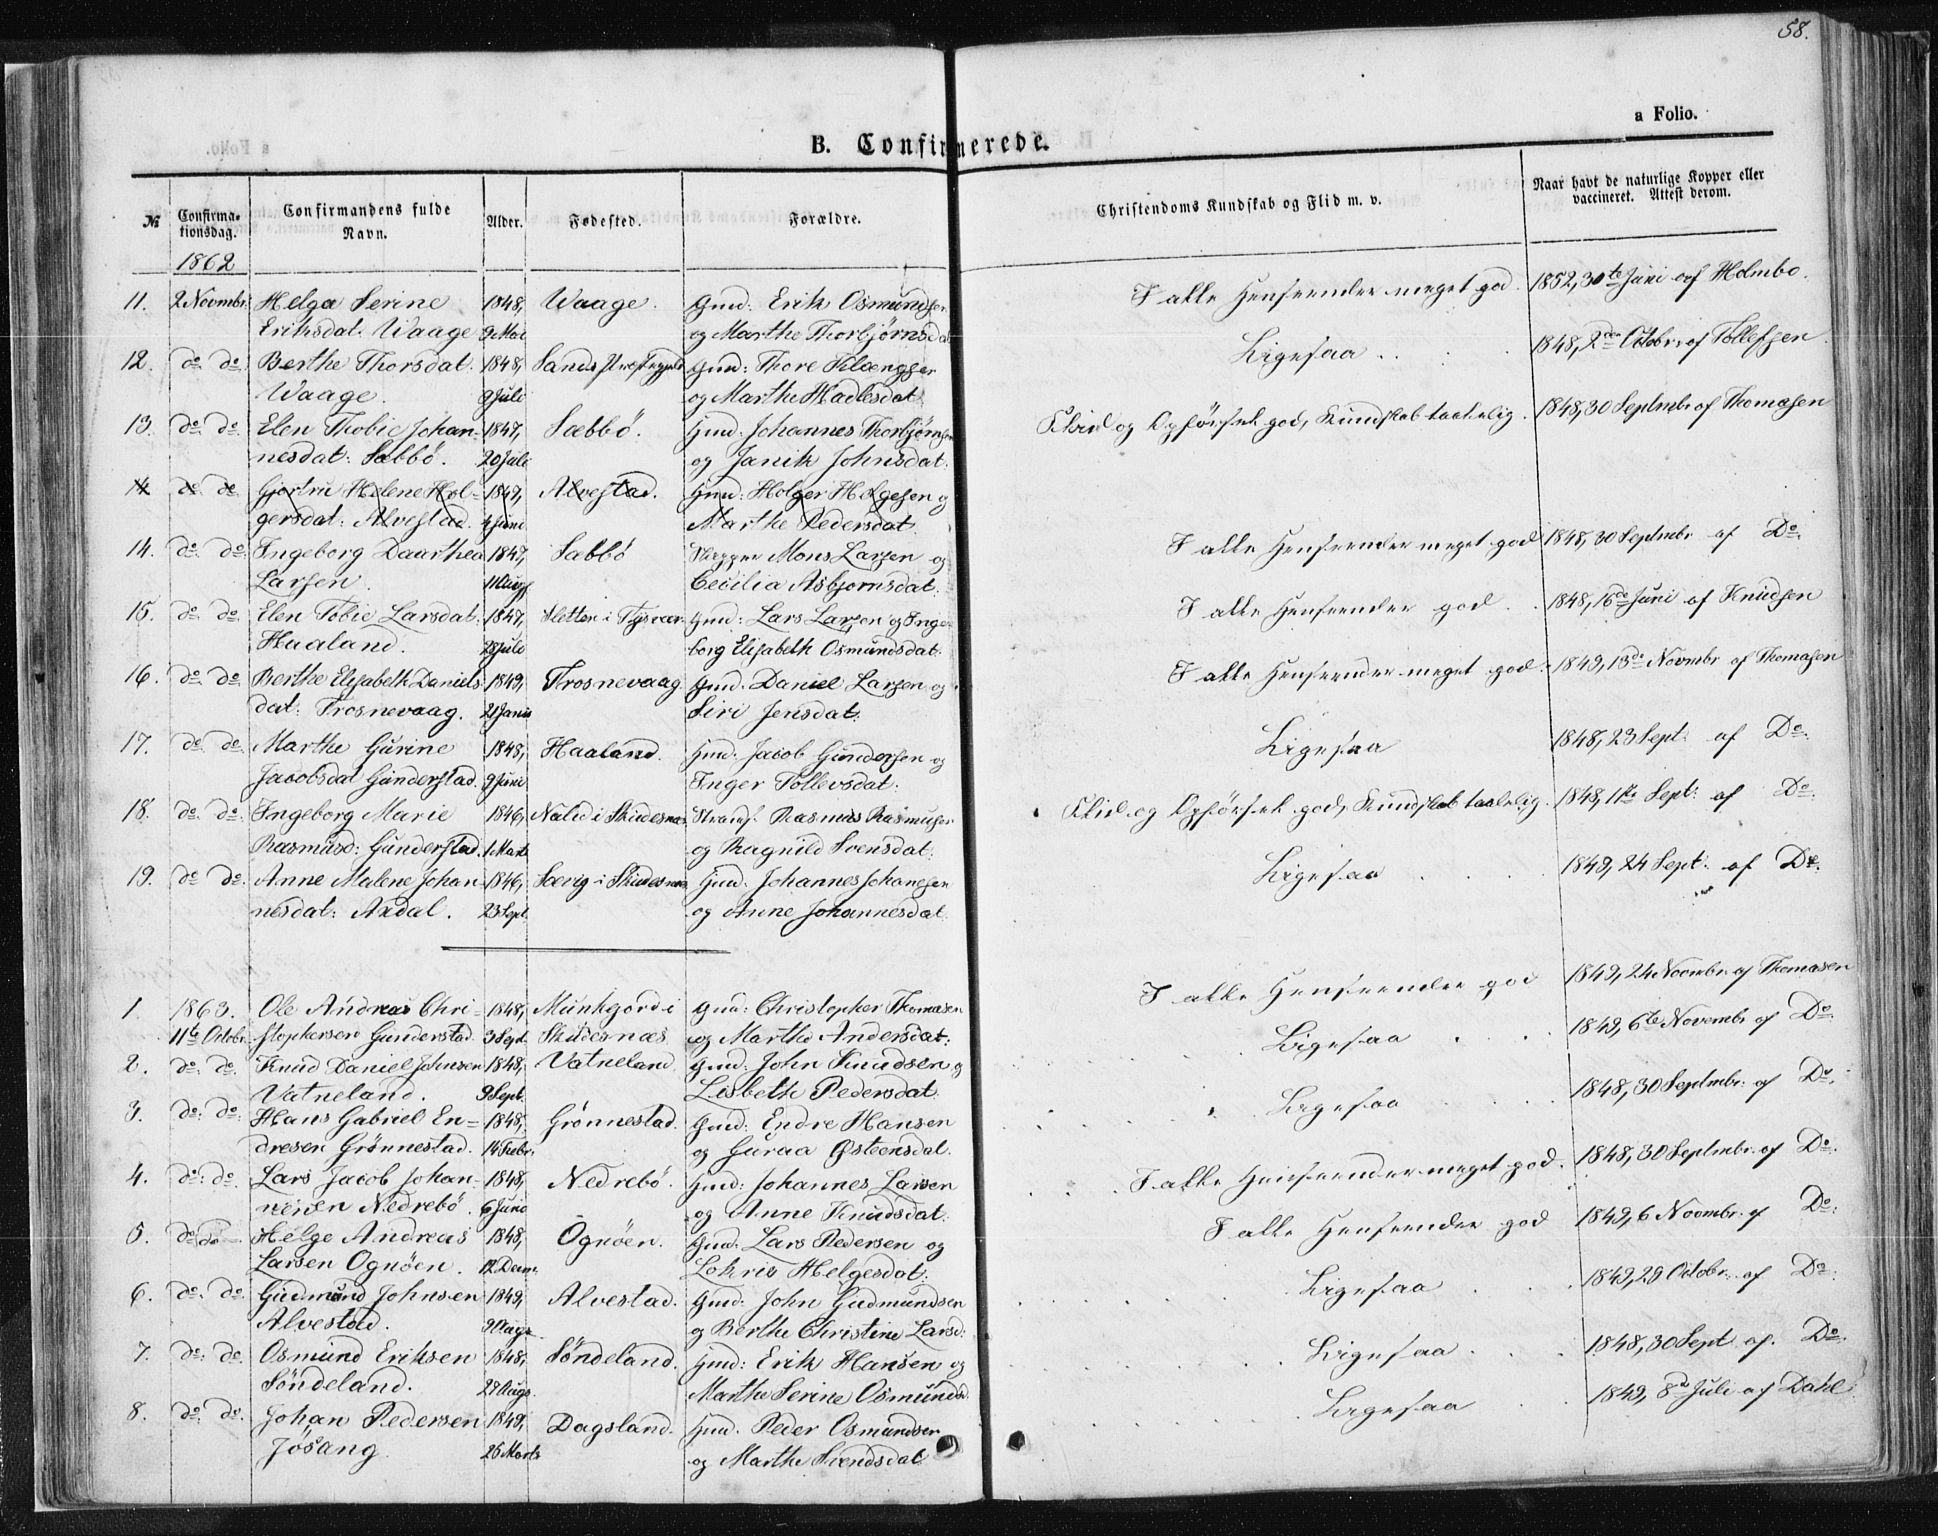 58.
a Folio.
B. Confirmerede.
№ Confirma- tionsdag. Confirmandens fulde Navn. Alder. Fødested. Forældre. Christendoms Kundskab og Flid m. v. Naar havt de naturlige Kopper eller vaccineret. Attest derom.
1862
11. 2 Novmbr. Helga Serine 1848, Waage. Gmd: Erik Osmundsen I alle Henseender meget god. 1852, 30te Juni af Holmbo.
Eriksdat: Waage 9 Mai og Marthe Thorbjørnsdat
12. do. do. Berthe Thorsdat. 1848, Sands Præstegjeld Gmd: Thore Ligesaa 1848, 2den Octobr. af Tollefsen.
Waage. 9 Juli og Marthe Hadlesdat.
13. do. do. Elen Thobie Johan- 1847, Sæbbö. Gmd: Johannes Thorbjörnsen Flid og Opførsel god, Kundskab taalelig. 1848, 30 Septmbr. af Thomasen
nesdat: Sæbbö. 20 Juli og Janik Johnsdat.
14. do. do. Gjertru Helene Hol- 1849, Alvestad. Gmd: Holger Helgesen og
gersdat: Alvestad. 4 Juni Marthe Pedersdat.
14. do. do. Ingeborg Daarthea 1847, Sæbbö Mons Larsen og I alle Henseender meget god 1848, 30 Septmbr. af Do.
Larsen. 11 Aug. Cecilia Asbjornsdat.
15. do. do. Elen Tobie Larsdat: 1847, Sletten i Tysvær. Gmd: Lars Larsen og Inge- I alle Henseender god. 1848, 16de Juni af Knudsen
Haaland. 28 Juli borg Elisabeth Osmundsdat.
16. do. do. Berthe Elisabeth Daniels- 1849, Trosnevaag Gmd. Daniel Larsen og I alle Henseender meget god. 1849, 13de Novmbr. af Thomasen
dat: Trosnevaag. 21 Janu Siri Jensdat:
17. do. do. Marthe Gurine 1848, Haaland. Gmd: Jacob Gundersen og Ligesaa 1848, 23 Sept: af Do.
Jacobsdat Gunderstad. 9 Juni Inger Tollevsdat:
18. do. do. Ingeborg Marie 1846, Naled i Skudesnæs. Strands. Rasmus Rasmusen Flid og Opførsel god, Kundskab taalelig. 1848, 1ste Sept: af Do.
Rasmusd: Gunderstad. 1 Marts og Ragnild Svensdat:
19. do. do. Anne Malene Johan- 1846, i Skudesnæs Gmd: Johannes Johanesen Ligesaa 1849, 24 Sept: af Do.
nesdat: Axdal. 23 Sept. og Anne Johannesdat.
1. 1863. Ole Andreas Chri- 1848, Munkgord i Gmd: Christopher Thomasen I alle Henseender god 1849, 24 Novmbr. af Thomasen
11te Octobr. stophersen Gunderstad. 3 Sept. Skudesnæs og Marthe Andersdat:
2. do. do. Knud Daniel Johnsen 1848, Vatneland Gmd: John Knudsen og Ligesaa 1849, 6te Novembr. af Do.
Vatneland. 9 Sept. Lisbeth Pedersdat.
3. do: do: Hans Gabriel En- 1848, Grönnestad. Gmd: Endre Hansen Ligesaa 1848, 30 Septmbr: af Do.
dresen Grönnestad. 14 Febr: og Guraa Østensdat.
4. do: do: Lars Jacob Johan- 1848, Nedrebö. Gmd: Johannes Larsen I alle Henseender meget god. 1848, 30 Septmbr. af Do.
nesen Nedrebö. 6 Juni og Anne Knudsdat:
5. do. do. Helge Andreas 1848, Ognöen. Gmd: Lars Pedersen og I alle Henseender god 1849, 6 Novmbr. af Do.
Larsen Ognöen. 12 Decm. Helgesdat.
6. do. do. Gudmund Johnsen 1849, Alvestad. Gmd: John Gudmundsen Ligesaa 1849, 29 Octobr. af Do.
Alvestad. 9 Aug. og Berthe Christine Larsd:
7. do. do. Osmund Eriksen 1848, Söndeland. Gmd: Erik Hansen og Ligesaa 1848, 30 Sept af. Do.
Söndeland. 27 Augs. Marthe Serine Osmundsd.
8. do. do. Johan Pedersen 1849, Dagsland. Gmd. Peder Osmundsen Ligesaa 1849, 8de Juli af Dahl.
Jösang. 26 Marts og Marthe Svendsdat.